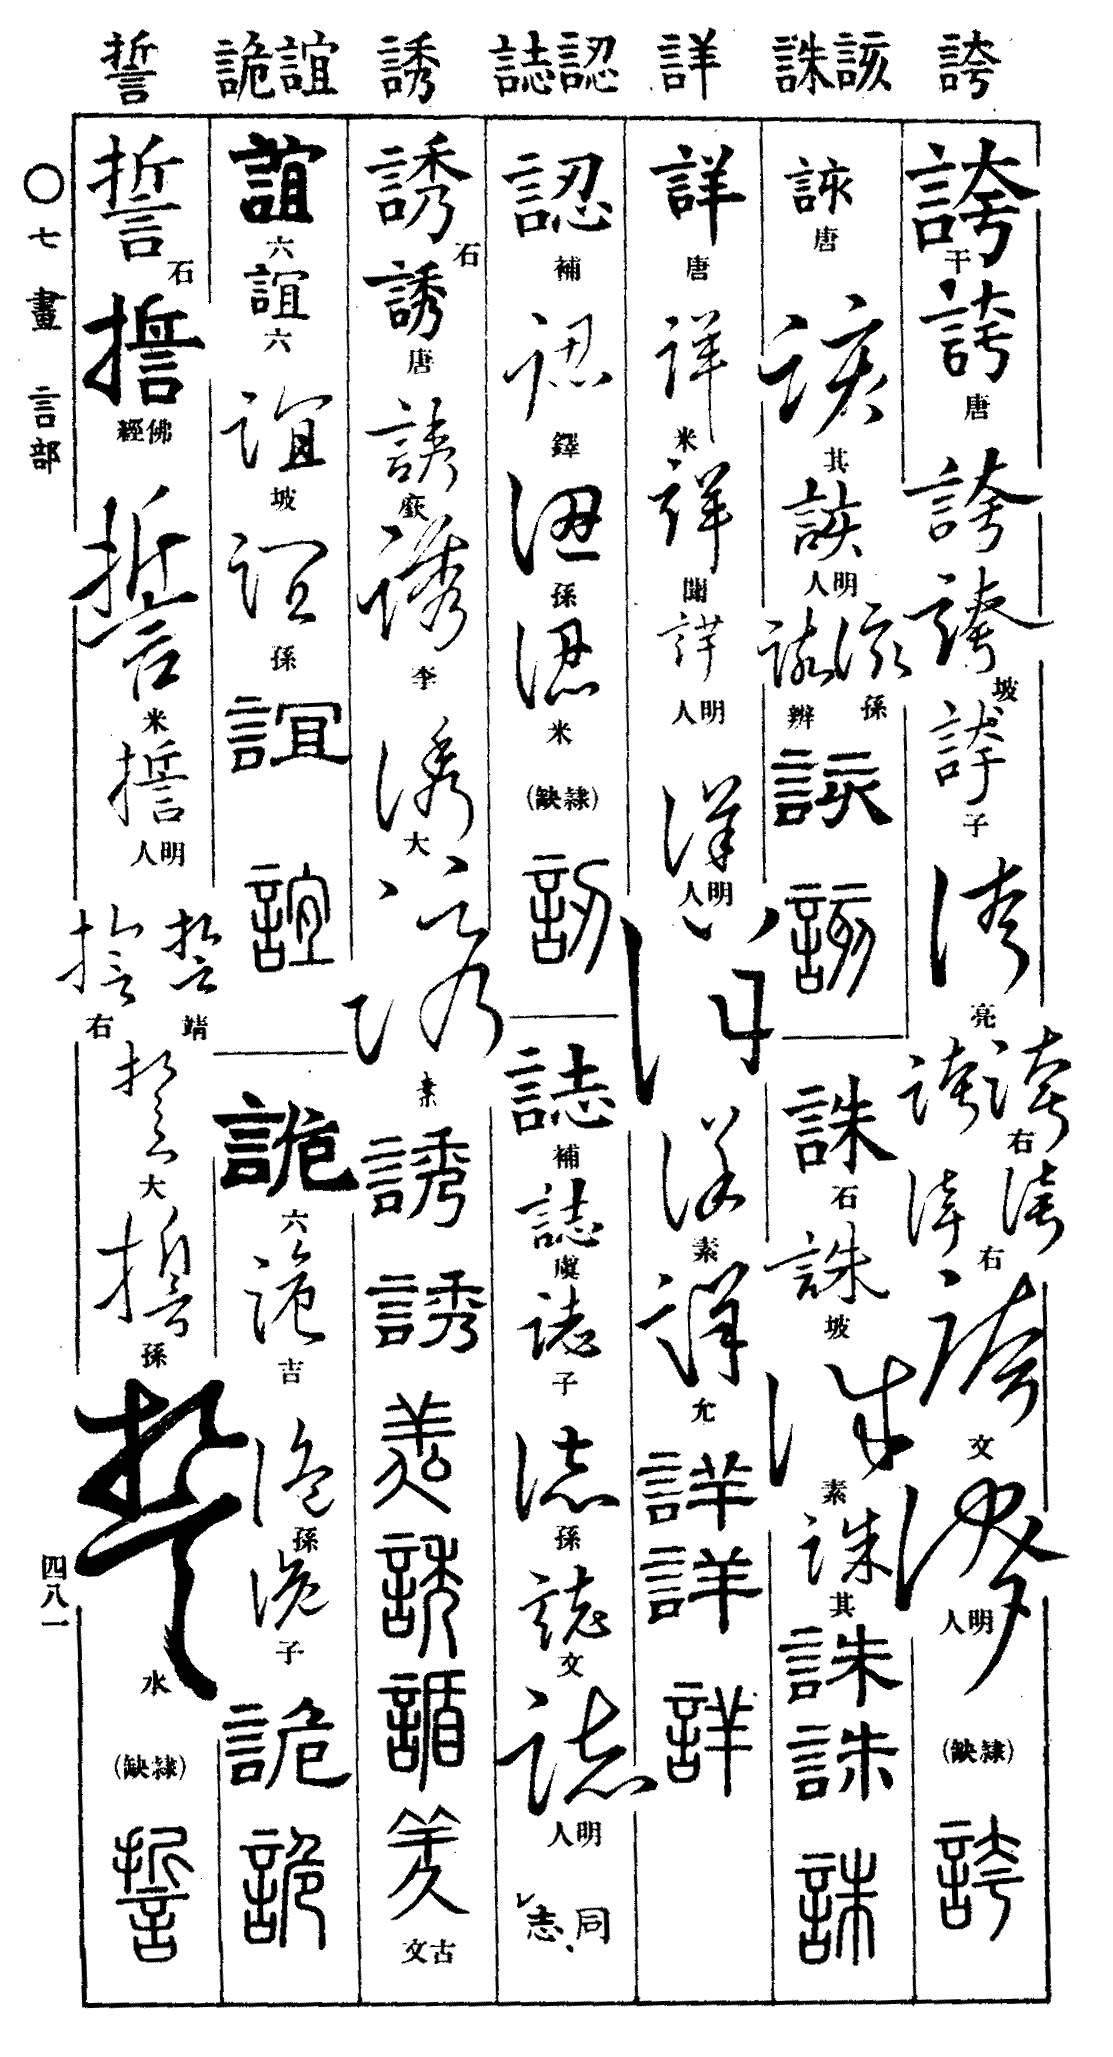 誇 該誅 詳 認誌 誘 誼詭 誓
誇 干 誇 唐 誇 誇 坡 誇 子 誇 亮 誇 誇 右 誇 誇 右 誇 文 誇 明人 (隸缺) 誇
該 唐 該 其 該 明人 該 孫 該 辨 該 該
誅 石 誅 坡 誅 素 誅 其 誅 誅 誅
詳 唐 詳 米 詳 聞 詳 明人 詳 明人 詳 詳 素 詳 允 詳 詳 詳
認 補 認 鐸 認 孫 認 米 (隸缺) 訒
誌 補 誌 虞 誌 子 誌 孫 誌 文 誌 明人 同志
誘 石 誘 唐 誘 誘 李 誘 大 誘 誘 誘 誘 古文
誼 六 誼 六 誼 坡 誼 孫 誼 誼
詭 六 詭 吉 詭 孫 詭 子 詭 詭
誓 石 誓 佛經 誓 米 誓 明人 誓 靖 誓 右 誓 大 誓 孫 誓 水 (隸缺) 誓
〇七畫 言部
四八一